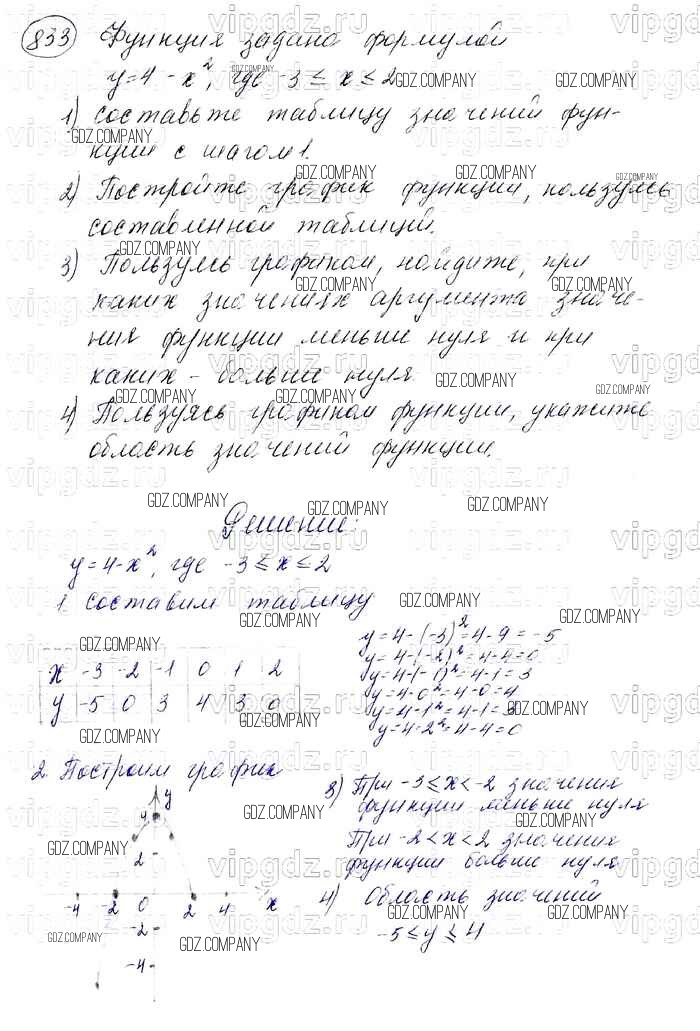 833 Функция задана формулой
y=4-x², где -3≤x≤2
1) составьте таблицу значений фун-
кции с шагом 1.
2) Постройте график функции, пользуясь
составленной таблицей.
3) Пользуясь графиком, найдите, при
каких значениях аргумента значе-
ния функции меньше нуля и при
каких - больше нуля
4) Пользуясь графиком функции, укажите
область значений функции.
Решение:
y=4-x², где -3≤x≤2
1. составим таблицу
x -3 -2 -1 0 1 2
y -5 0 3 4 3 0
y=4-(-3)²=4-9=-5
y=4-(-2)²=4-4=0
y=4-(-1)²=4-1=3
y=4-0²=4-0=4
y=4-1²=4-1=3
y=4-2²=4-4=0
2. Построим график
y
4
2
-4 -2 0 2 4 x
-2
-4
3) При -3≤x<-2 значения
функции меньше нуля
При -2<x<2 значения
функции больше нуля
4) Область значений
-5≤y≤4
GDZ.COMPANY
vipgdz.ru